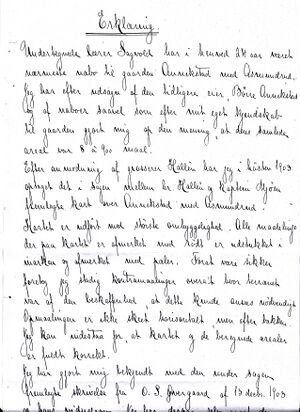 Erklæring.
Undertegnede Lærer Sagvold har i henved 24 aar været
nærmeste nabo til gaarden Annekstad med Asmundrud.
Jeg har efter udsagn af den tidligere eier, Börre Annekstad
og af naboer saavel som efter mit eget kjendskab
til gaarden gjort mig op den mening, at dens samlede
areal var 8 à 900 maal.
Efter anmodning af grosserer Hallén har jeg i høsten 1903
optaget det i sagen mellem hr. Hallén og Kaptein
fremlagte kart over Annekstad med Asmundrud.
Kartet er udført med største omhyggelighed. Alle maalelinjer
der paa kartet er afmerket med rödt er udstukket i
marken og afmerket med pæler. Forst være sikker
foretog jeg stadig kontramaalinger overalt hvor terrænet
var af den beskaffenhed at dette kunde ansees nødvendigt
Opmaalingen er ikke skeet horisontalt, men efter bakken.
Jeg kan indestaa for, at kartet og de beregnede arealer
er fuldt korrekt.
Jeg har gjort mig bekjendt med den under sagen
fremlagte skrivelse fra O. S. Overgaard af 13 decbr. 1903